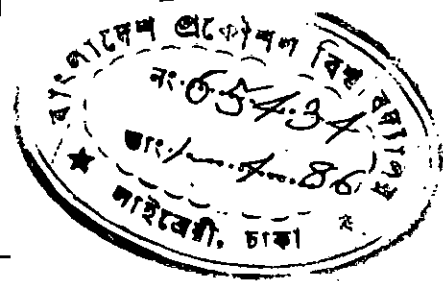 বাংলাদেশ প্রকৌশল বিশ্ববিদ্যালয়
নং. 65434
তাং. 1.4.86
★ লাইব্রেরী, ঢাকা